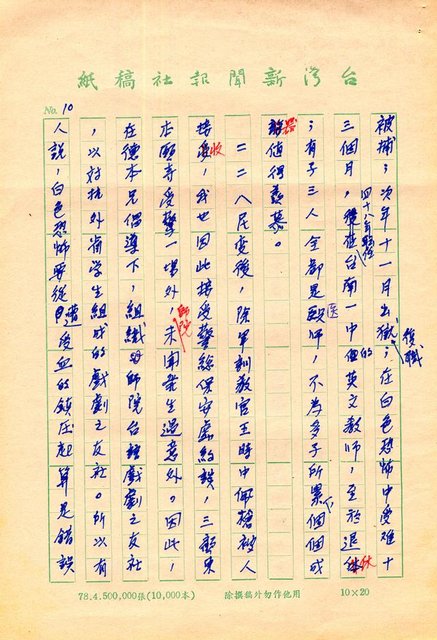 台灣新聞報社稿紙
No. 10
被捕；次年十一月出獄；復職在白色恐怖中受難十
三個月，四十八年轉任台南一中的英文教師，至於退休
；有子三人全都是醫師，不為多子所累，個個成
器值得羨慕。
二二八民變後，除軍訓教官王時中佩槍被人
接收，我也因此接受警總保安處約談，三顧東
本願寺受驚一場外，師院未聞發生過意外。因此，
在德本兄倡導下，組織師院台語戲劇之友社
，以對抗外省学生組成的戲劇之友社。所以有
人說，白色恐怖要從遭受血的鎮压起算是錯誤
78.4.500,000張(10,000本)
除撰稿外勿作他用
10×20